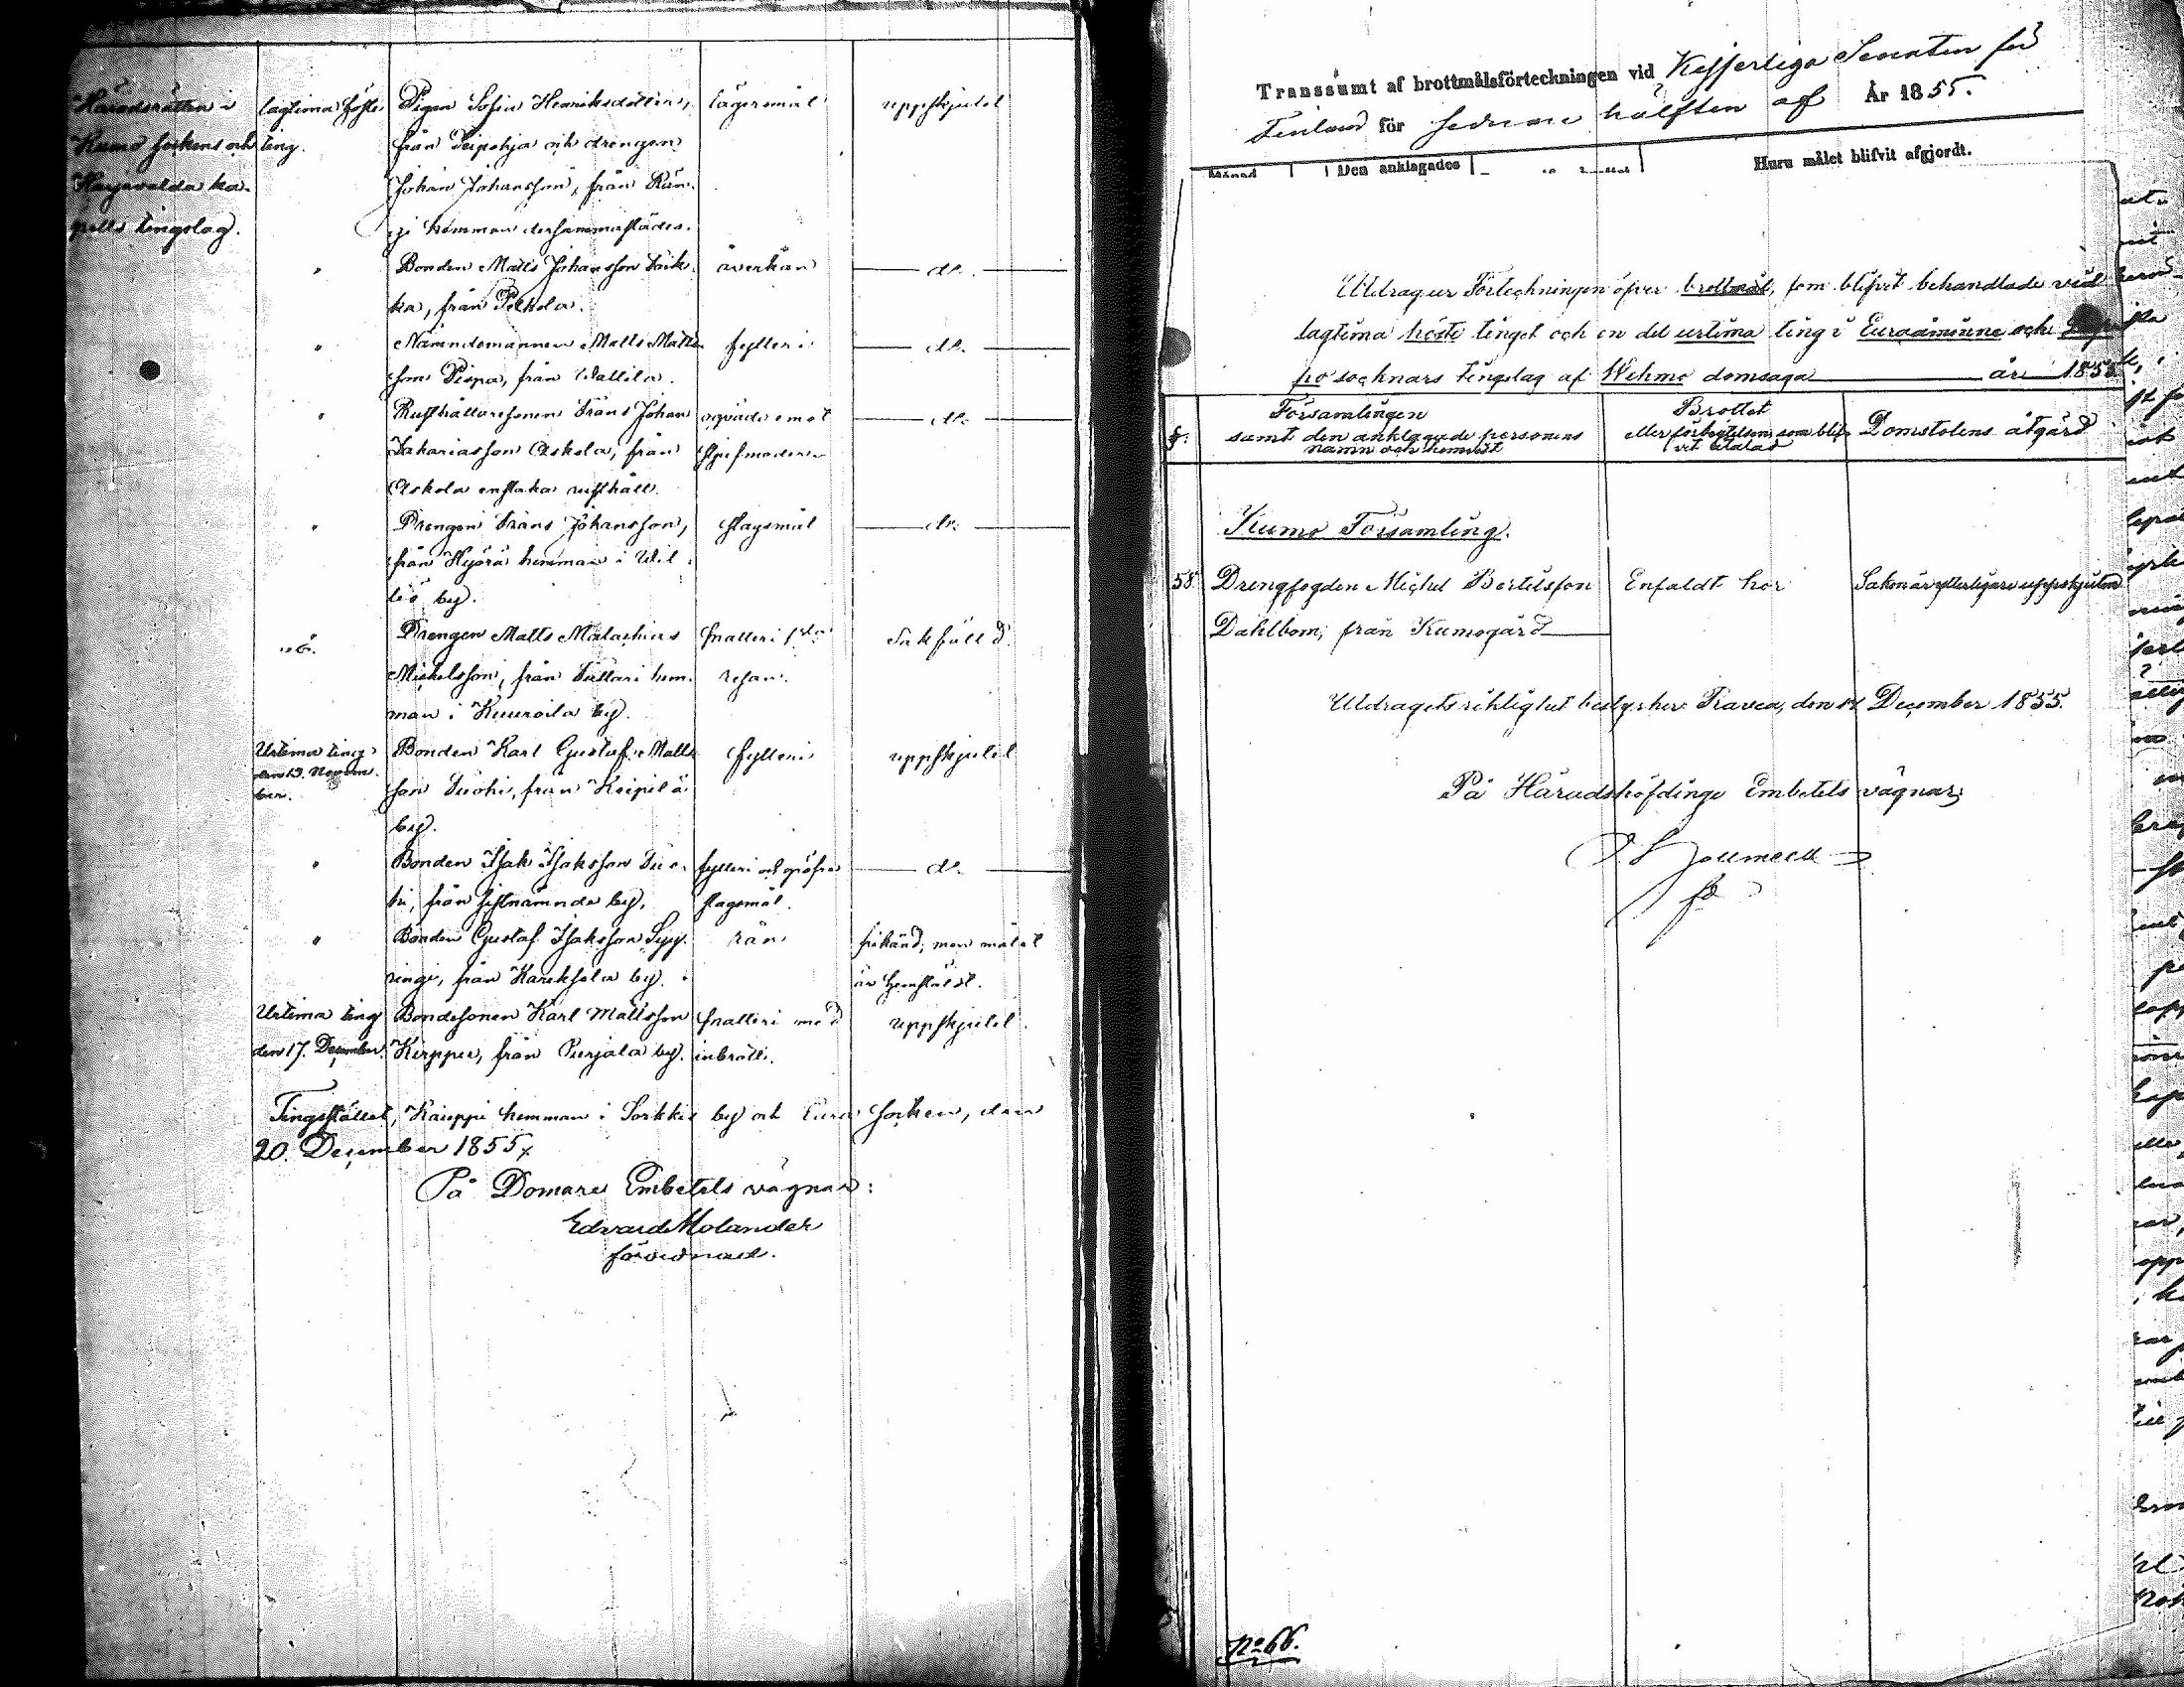 Häradsrätten i
Kumo sockens och
Harjavalda ka-
pells tingslag.
lagtima höste
ting.
Pigan Sofia Henriksdotter,
från Peipohja och drengen
Johan Johansson, från
hemman dersammastädes.
lägersmål
uppskjutet
" Bonden Matts Johansson
ka, från
åverkan
do.
" Nämndemannen Matts Matts
son Pispa, från Wallila.
fylleri
do.
" Rusthållaresonen Frans Johan
Zakariasson Askola, från
Askola enstaka rusthåll.
emot
styfmodern
do.
" Drengen Frans Johansson,
från hemman i Wil
liö by.
slagsmål
do.
Drengen Matts Malachias
Mickelsson, från Tuttari hem-
man i Kuuroila by.
snatteri 1sta
resan.
Sakfälld.
Urtima ting
den 19. Novem-
ber.
Bonden Karl Gustaf Matts
son Tuohi, från Keipilä
by.
fylleri
uppskjutet
" Bonden Isak Isaksson Tuo-
hi, från sistnämnde by.
fylleri och
slagsmål.
do.
" Bonden Gustaf Isaksson Sipp-
ringi, från Kareksela by.
rån
frikänd, men målet
är hemstäldt.
Urtima ting
den 17. December.
Bondesonen Karl Mattsson
Kirppu, från Purjala by.
snatteri med
inbrott.
uppskjutet.
Tingsstället, Kauppi hemman i Sorkkis by och Eura socken, den
20. December 1855
På Domare Embetets vägnar:
Edvard Molander
förordnad.
Transsumt af brottmålsförteckningen vid Kejserliga Senaten för
Finland för sednare hälften af År 1855.
Månad Den anklagades
Huru målet blifvit afgjordt.
Utdrag ur Förteckningen öfver brottmål, som blifvit behandlade vid
lagtima höste tinget och en del urtima ting i Euraåminne och
po socknars tingslag af Wehmo domsaga år 1855
§:
Församlingen
samt den anklagade personens
namn och hemvist
Brottet
eller förbrytelsen som blif-
vit åtalad
Domstolens åtgärd
Kumo Församling.
58. Drengfogden Michel Bertilsson
Dahlbom, från Kumogård
Enfaldt hor
Saken är ytterligare uppskjuten
Utdragets riktighet betyger: Pravea, den 14 December 1855.
På Häradshöfdinge Embetets vägnar;
No 66.